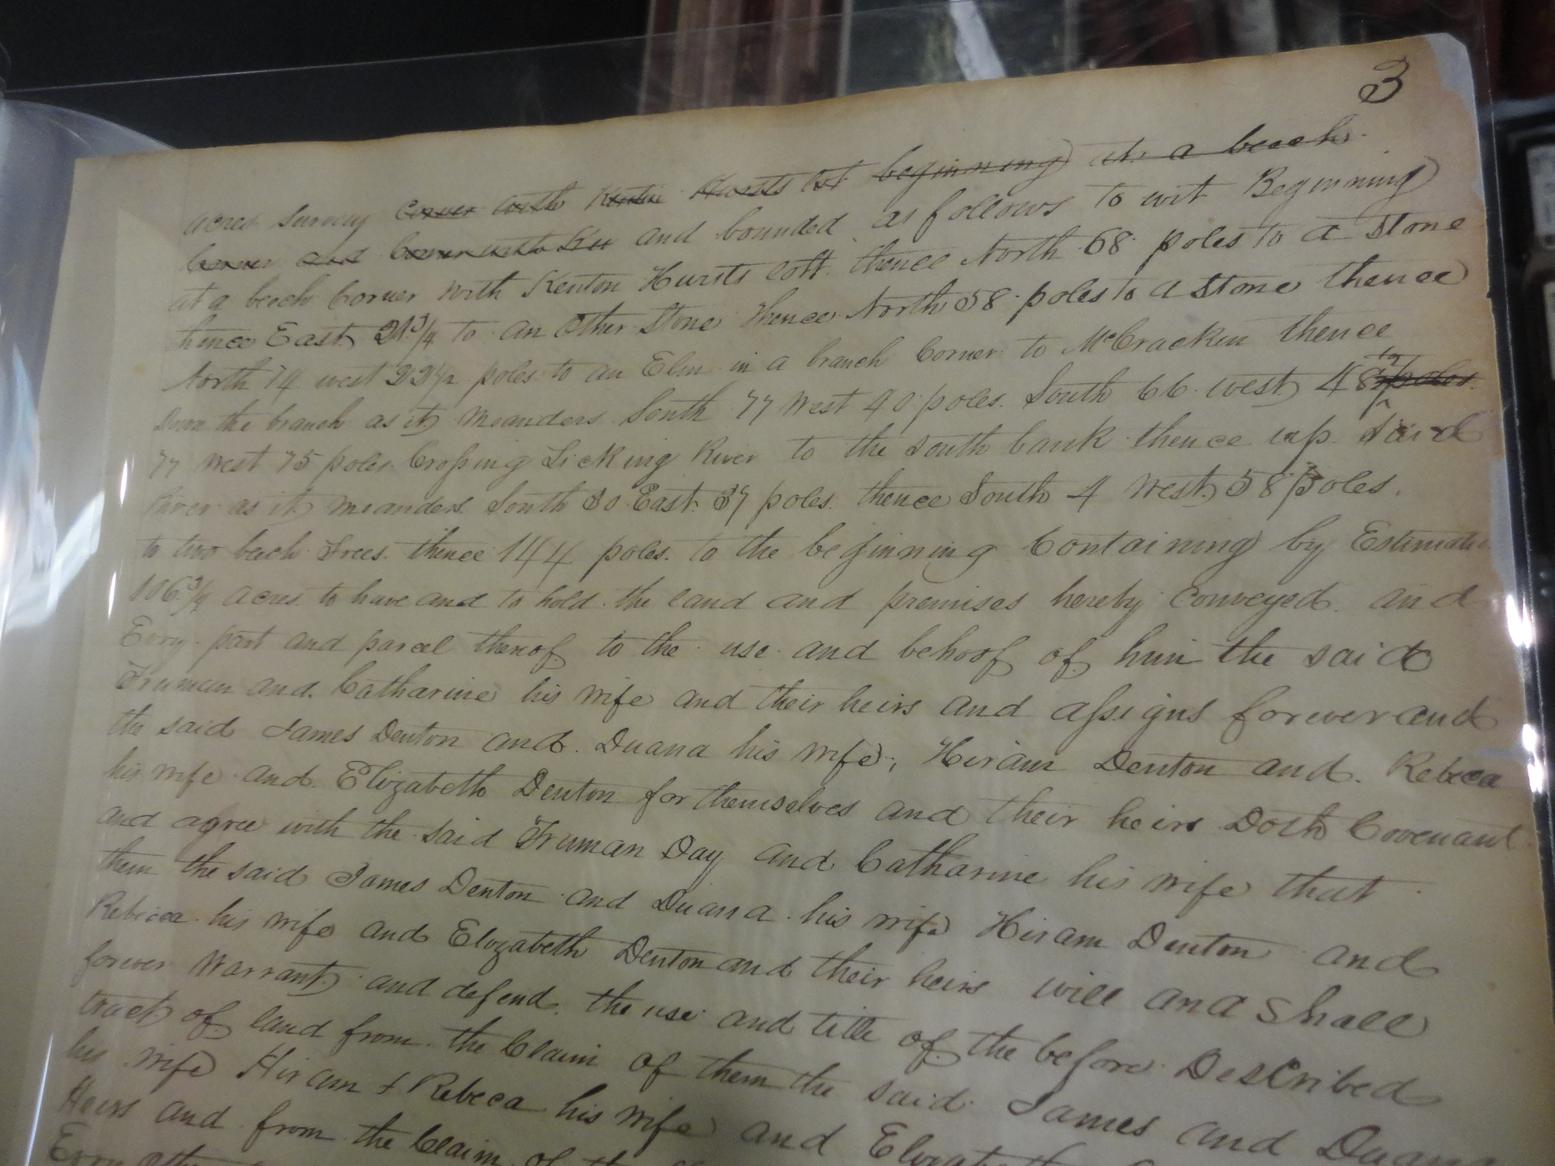 3
acres survey corner with Kenton Hursts at beginning at a beech
corner and corner with and bounded as follows to wit Beginning
at a beech Corner with Kenton Hursts thence North 68 poles to a Stone
thence East 21 3/4 to an Other Stone thence North 58 poles to a Stone thence
North 74 west 23 1/2 poles to an Elm in a branch Corner to McCracken thence
Down the branch as it meanders South 77 West 40 poles. South 66 west 48 poles
77 West 75 poles Crossing Licking River to the south bank thence up said
River as it meanders South 30 East 37 poles. thence South 4 West 58 poles.
to two beech Trees. thence 144 poles. to the beginning Containing by Estimate
106 3/4 acres to have and to hold the land and premises hereby Conveyed. and
Evry part and parcel thereof to the use and behoof of him the said
Truman and Catharine his wife and their heirs and assigns forever and
the said James Denton and Duana his wife, Hiram Denton and Rebeca
his wife and Elizabeth Denton for themselves and their heirs Doth Covenant
and agree with the said Truman Day and Catharine his wife that
them the said James Denton and Duana his wife Hiram Denton and
Rebicca his wife and Elizabeth Denton and their heirs will and Shall
forever Warrant and defend the use and title of the before Described
tract of land from the Claim of them the said James and Duana
his wife Hiram & Rebeca his wife and Elizabeth
Heirs and from the Claim of the
Evry other